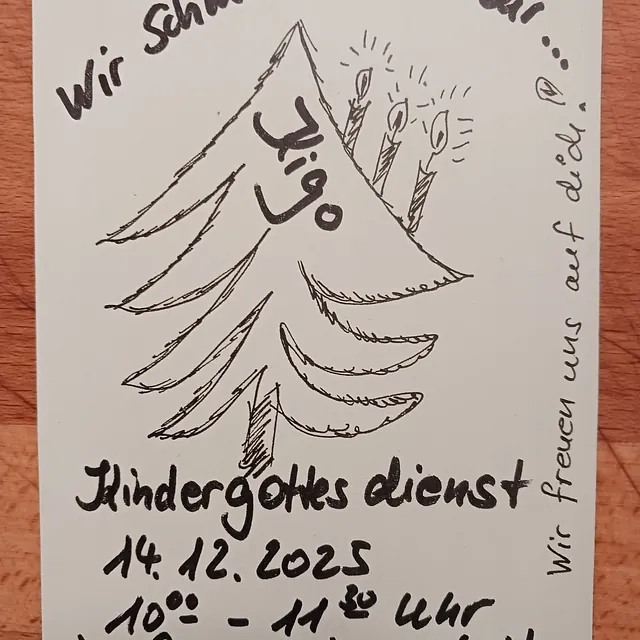 Wir
Ki
Go
Kindergottesdienst
14.12.2025
10⁰⁰ - 11³⁰ Uhr
Wir freuen uns auf dich!